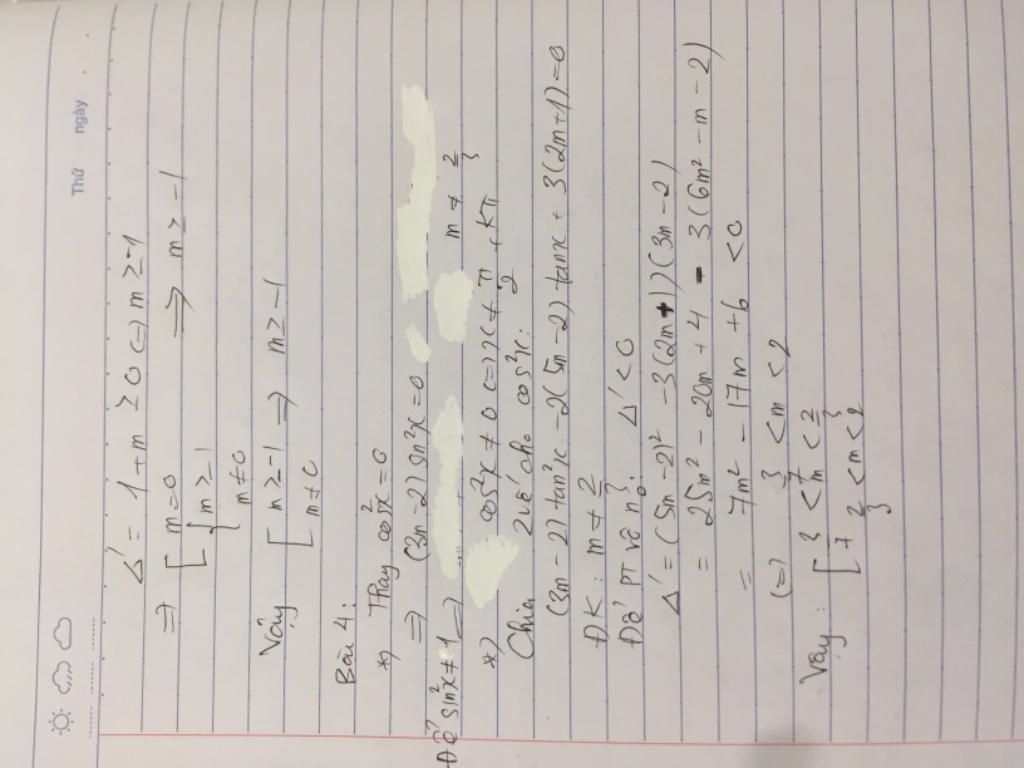 Thứ ngày
Δ' = 1 + m ≥ 0 (=) m ≥ -1
=) [ m = 0 => m ≥ -1
{ m ≥ -1
m ≠ 0
Vậy [ m ≥ -1 => m ≥ -1
m ≠ 0
Bài 4:
*) Thay cos²x = 0
=) (3m - 2) sin²x = 0
Để sin²x ≠ 1 =) m ≠ 2/3
*) cos²x ≠ 0 (=) x ≠ π/2 + kπ
Chia 2 vế cho cos²x:
(3m - 2) tan²x - 2(5m - 2) tanx + 3(2m + 1) = 0
ĐK: m ≠ 2/3
Để PT vô n⁰: Δ' < 0
Δ' = (5m - 2)² - 3(2m + 1)(3m - 2)
= 25m² - 20m + 4 - 3(6m² - m - 2)
= 7m² - 17m + 6 < 0
(=) 3/7 < m < 2
Vậy: [ 3/7 < m < 2/3
2/3 < m < 2